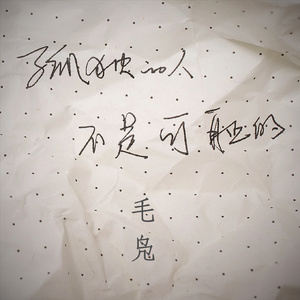 孤独的人
不是可耻的
毛凫